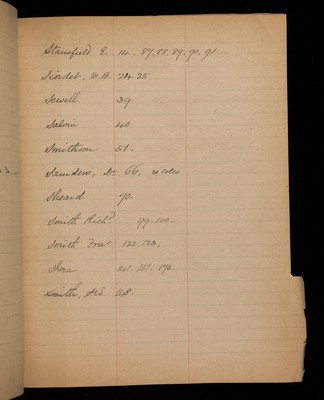 Stansfield E. 14. 87. 88. 89. 90. 91
M.B. 24. 25
Sewell. 39
Salvin 40
Smithson 51.
Saunders, Dr. 66,
Sheard 70.
Smith Richd. 99. 100.
Smith 122. 123.
Shore 141. 151. 170.
Smith, 148.